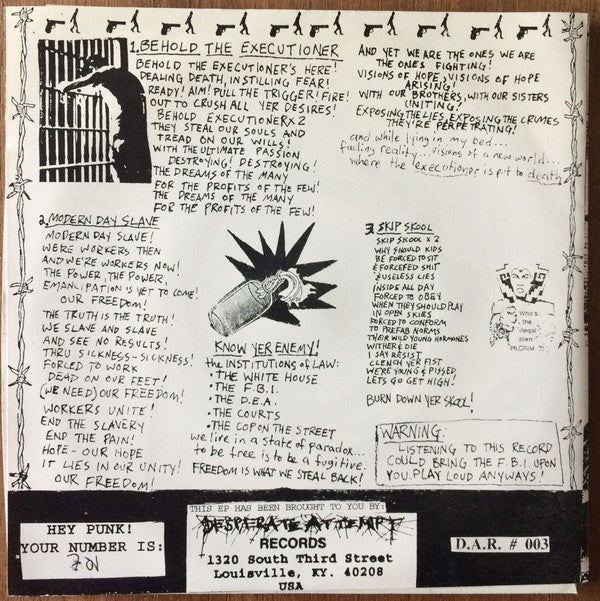 1. BEHOLD THE EXECUTIONER
BEHOLD THE EXECUTIONER'S HERE!
DEALING DEATH, INSTILLING FEAR!
READY! AIM! PULL THE TRIGGER! FIRE!
OUT TO CRUSH ALL YER DESIRES!
BEHOLD EXECUTIONER X 2
THEY STEAL OUR SOULS AND
TREAD ON OUR WILLS!
WITH THE ULTIMATE PASSION
DESTROYING! DESTROYING!
THE DREAMS OF THE MANY
FOR THE PROFITS OF THE FEW!
THE DREAMS OF THE MANY
FOR THE PROFITS OF THE FEW!
AND YET WE ARE THE ONES WE ARE
THE ONES FIGHTING!
VISIONS OF HOPE, VISIONS OF HOPE
ARISING!
WITH OUR BROTHERS, WITH OUR SISTERS
UNITING!
EXPOSING THE LIES, EXPOSING THE CRIMES
THEY'RE PERPETRATING!
and while lying in my bed...
fading reality... visions of a new world...
where the executioner is put to death
2. MODERN DAY SLAVE
MODERN DAY SLAVE!
WERE WORKERS THEN
AND WE'RE WORKERS NOW!
THE POWER, THE POWER,
EMANCIPATION IS YET TO COME!
OUR FREEDOM!
THE TRUTH IS THE TRUTH!
WE SLAVE AND SLAVE
AND SEE NO RESULTS!
THRU SICKNESS - SICKNESS!
FORCED TO WORK
DEAD ON OUR FEET!
(WE NEED) OUR FREEDOM!
WORKERS UNITE!
END THE SLAVERY
END THE PAIN!
HOPE - OUR HOPE
IT LIES IN OUR UNITY!
OUR FREEDOM!
KNOW YER ENEMY!
the INSTITUTIONS of LAW:
• THE WHITE HOUSE
• THE F.B.I.
• THE D.E.A.
• THE COURTS
• THE COP ON THE STREET
we live in a state of paradox...
to be free is to be a fugitive.
FREEDOM IS WHAT WE STEAL BACK!
3. SKIP SKOOL
SKIP SKOOL X 2
WHY SHOULD KIDS
BE FORCED TO SIT
& FORCEFED SHIT
& USELESS LIES
INSIDE ALL DAY
FORCED TO OBEY
WHEN THEY SHOULD PLAY
IN OPEN SKIES
FORCED TO CONFORM
TO PREFAB NORMS
THEIR WILD YOUNG HORMONES
WITHER & DIE
I SAY RESIST
CLENCH YER FIST
WE'RE YOUNG & PISSED
LETS GO GET HIGH!
BURN DOWN YER SKOOL!
Who's
the
illegal
alien,
PILGRIM ?!
WARNING:
LISTENING TO THIS RECORD
COULD BRING THE F.B.I. UPON
YOU. PLAY LOUD ANYWAYS!
HEY PUNK!
YOUR NUMBER IS:
THIS EP HAS BEEN BROUGHT TO YOU BY:
DESPERATE ATTEMPT
RECORDS
1320 South Third Street
Louisville, KY. 40208
USA
D.A.R. # 003